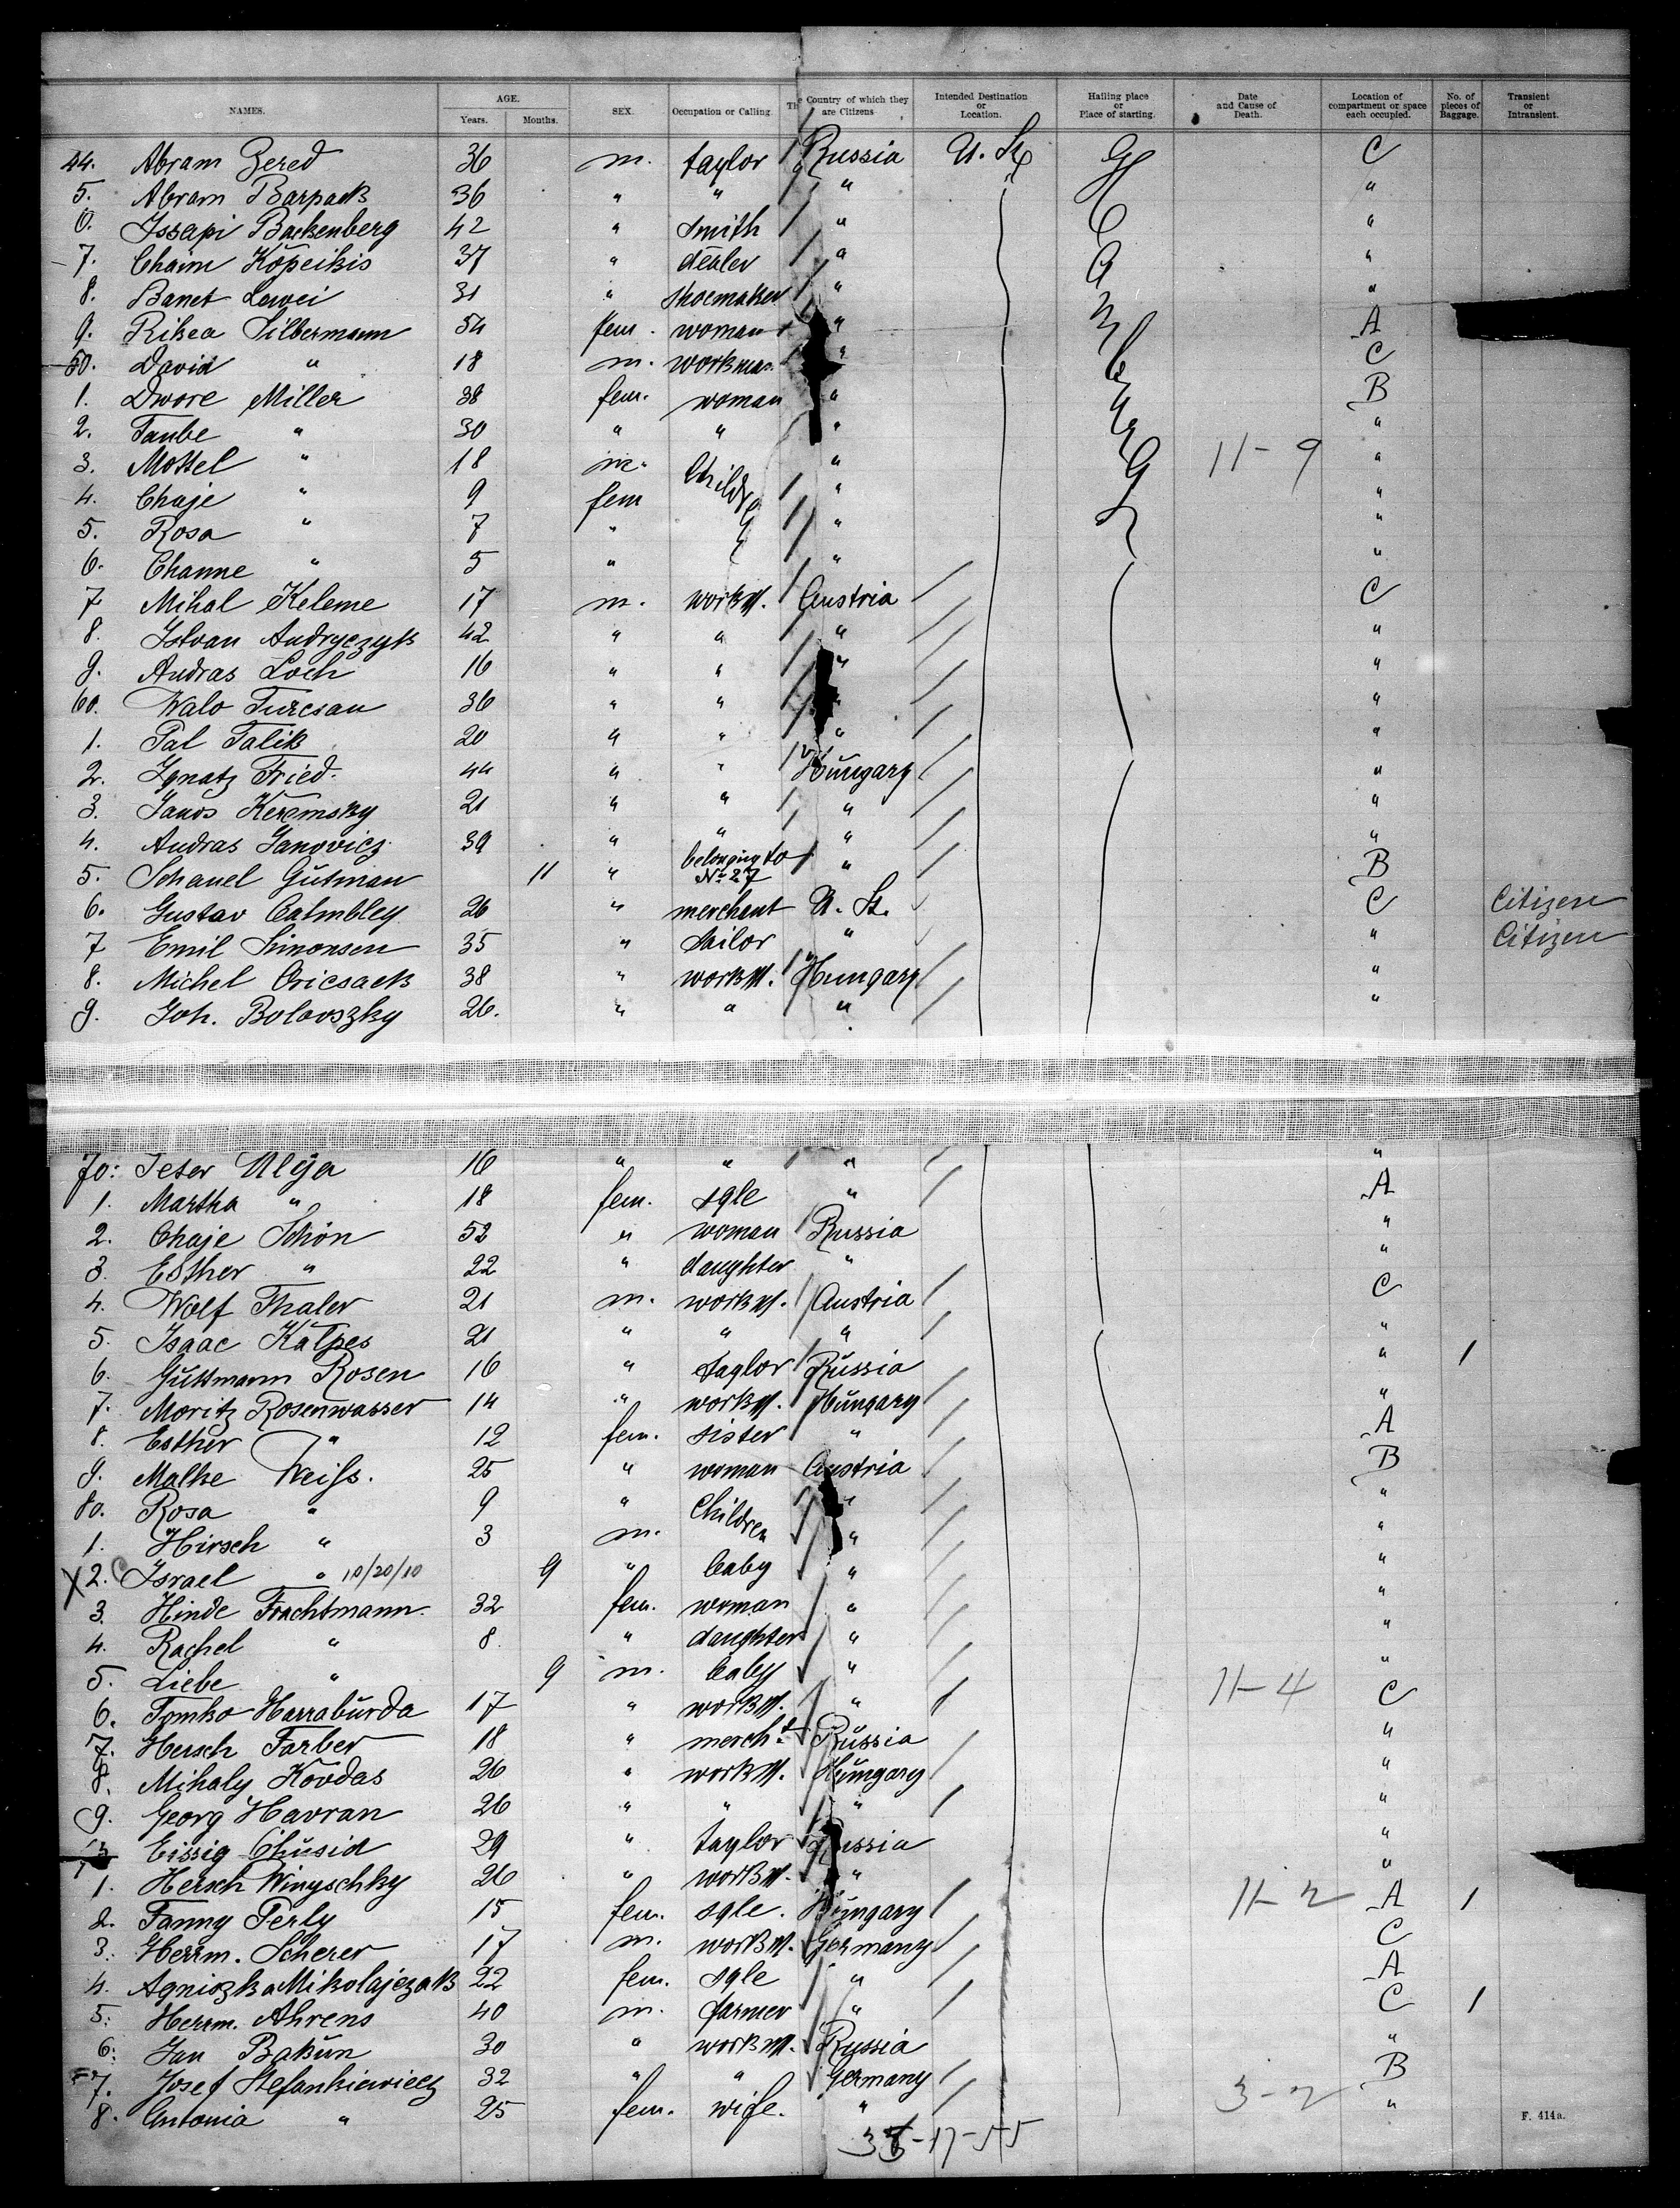 NAMES. AGE. Years. Months. SEX. Occupation or Calling. The Country of which they are Citizens Intended Destination or Location. Hailing place or Place of starting. Date and Cause of Death. Location of compartment or space each occupied. No. of pieces of Baggage. Transient or Intransient.
44. Abram Zered 36 m. taylor Russia U. St. C
5. Abram Barpack 36 " " " "
6. Issapi Backenberg 42 " smith " "
7. Chaim Kopeikis 37 " dealer " "
8. Banet Lewei 31 " shoemaker " "
9. Rikea Silbermann 54 fem. woman " A
50. David " 18 m. workman " C
1. Dwore Miller 38 fem. woman " B
2. Taube " 30 " " " "
3. Mottel " 18 m. Childr " 11-9 "
4. Chaje " 9 fem " "
5. Rosa " 7 " " "
6. Channe " 5 " " "
7 Mihal Keleme 17 m. workm. Austria C
8. Istvan Andryczyk 42 " " " "
9. Andras Loch 16 " " " "
60. Walo Turcsan 36 " " " "
1. Pal Talik 20 " " " "
2. Ignatz Fried. 44 " " Hungary "
3. Janos Keremsky 21 " " " "
4. Andras Janovicz 39 " " " "
5. Schanel Gutman 11 " belonging to No 27 " B
6. Gustav Calmbley 26 " merchant U. St. C Citizen
7 Emil Simonsen 35 " sailor " " Citizen
8. Michel Oricsack 38 " workm. Hungary "
9. Joh. Bolavszky 26. " " " "
70. Peter Ulija 16 " " " "
1. Martha " 18 fem. sgle " A
2. Chaje Schön 52 " woman Russia "
3. Esther " 22 " daughter " "
4. Wolf Thaler 21 m. workm. Austria C
5. Isaac Katpes 21 " " " "
6. Guttmann Rosen 16 " taylor Russia " 1
7. Moritz Rosenwasser 14 " workm. Hungary "
8. Esther " 12 fem. sister " A
9. Malke Weiss. 25 " woman Austria B
80. Rosa " 9 " Children " "
1. Hirsch " 3 m. " "
X 2. C Israel " 10/20/10 9 " baby " "
3. Hinde Frachtmann 32 fem. woman " "
4. Rachel " 8. " daughter " "
5. Liebe " 9 m. baby " "
6. Tomko Harraburda 17 " workm. " 11-4 C
7. Hersch Farber 18 " mercht. Russia "
8. Mihaly Kovdas 26 " workm. Hungary "
9. Georg Havran 26 " " " "
Eissig Chusid 29 " taylor Russia "
1. Hersch Winyschky 26 " workm. " "
2. Fanny Perly 15 fem. sgle. Hungary 11-2 A 1
3. Herrm. Scherer 17 m. workm. Germany C
4. Agnioszka Mikolajczak 22 fem. sgle " A
5. Herrm. Ahrens 40 m. farmer " C 1
6. Jan Bakun 30 " workm. Russia "
7. Josef Stefankiewiecz 32 " " Germany B
8. Antonia " 25 fem. wife. " 3-2 "
-17-55
F. 414a.